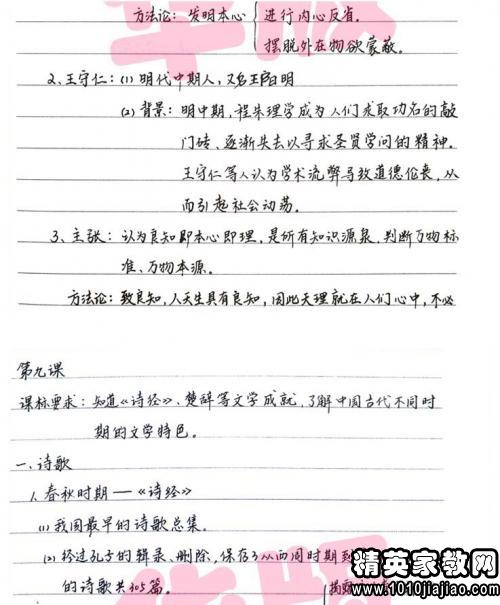 方法论：发明本心 进行内心反省。
摆脱外在物欲蒙蔽。
2、王守仁：(1) 明代中期人，又名王阳明
(2) 背景：明中期，程朱理学成为人们求取功名的敲
门砖、逐渐失去以寻求圣贤学问的精神。
王守仁等人认为学术流弊导致道德伦丧，从
而引起社会动荡。
3、主张：认为良知即本心即理，是所有知识源泉，判断万物标
准、万物本源。
方法论：致良知，人天生具有良知，因此天理就在人们心中，不必
第九课
课标要求：知道《诗经》、楚辞等文学成就，了解中国古代不同时
期的文学特色。
一、诗歌
1、春秋时期 — 《诗经》
(1) 我国最早的诗歌总集。
(2) 经过孔子的辑录、删除，保存了从西周时期到
的诗歌共305篇。
精英家教网
www.1010jiajiao.com